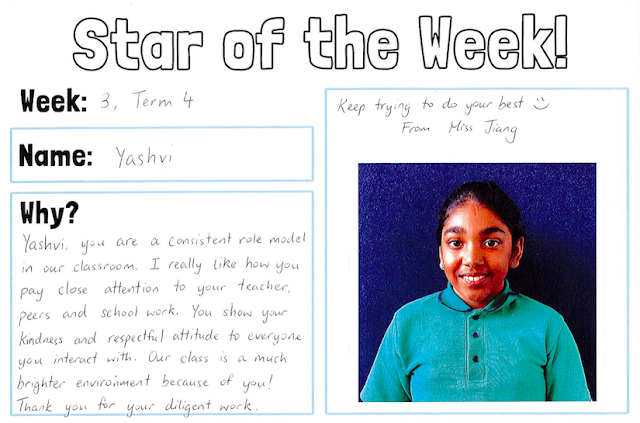 Star of the Week!
Week: 3, Term 4
Name: Yashvi
Why?
Yashvi, you are a consistent role model
in our classroom. I really like how you
pay close attention to your teacher,
peers and school work. You show your
kindness and respectful attitude to everyone
you interact with. Our class is a much
brighter environment because of you!
Thank you for your diligent work.
Keep trying to do your best :)
From Miss Jiang